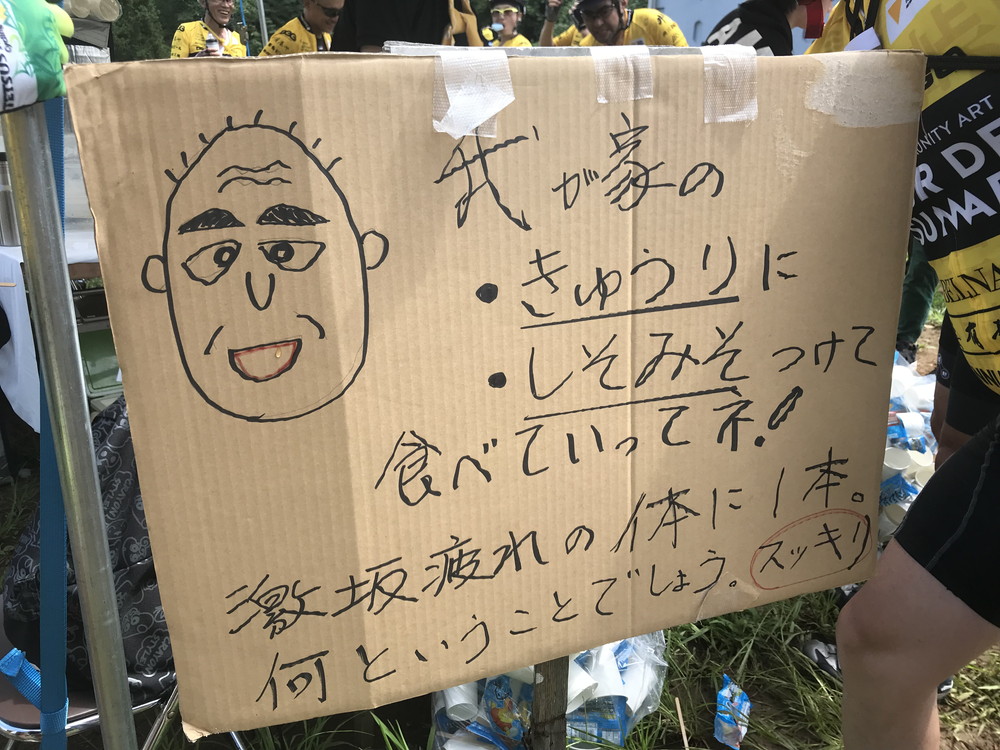 我が家の
・きゅうりに
・しそみそつけて
食べていってネ!
激坂疲れの体に1本。
何ということでしょう。スッキリ